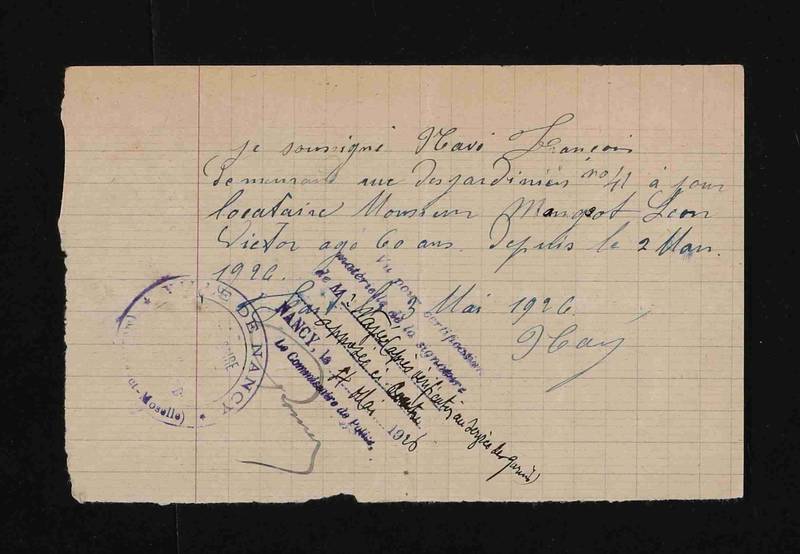 je soussigné Havé François
demeurant rue des jardiniers no 41 à pour
locataire Monsieur Mangeot Léon
Victor agé 60 ans. depuis le 2 Mars.
1926.
3 Mai 1926.
Vu pour certification
matérielle de la signature
de Mr
apposée ci-contre
NANCY, le 4 Mai 1926
Le Commissaire de Police,
VILLE DE NANCY
et-Moselle)